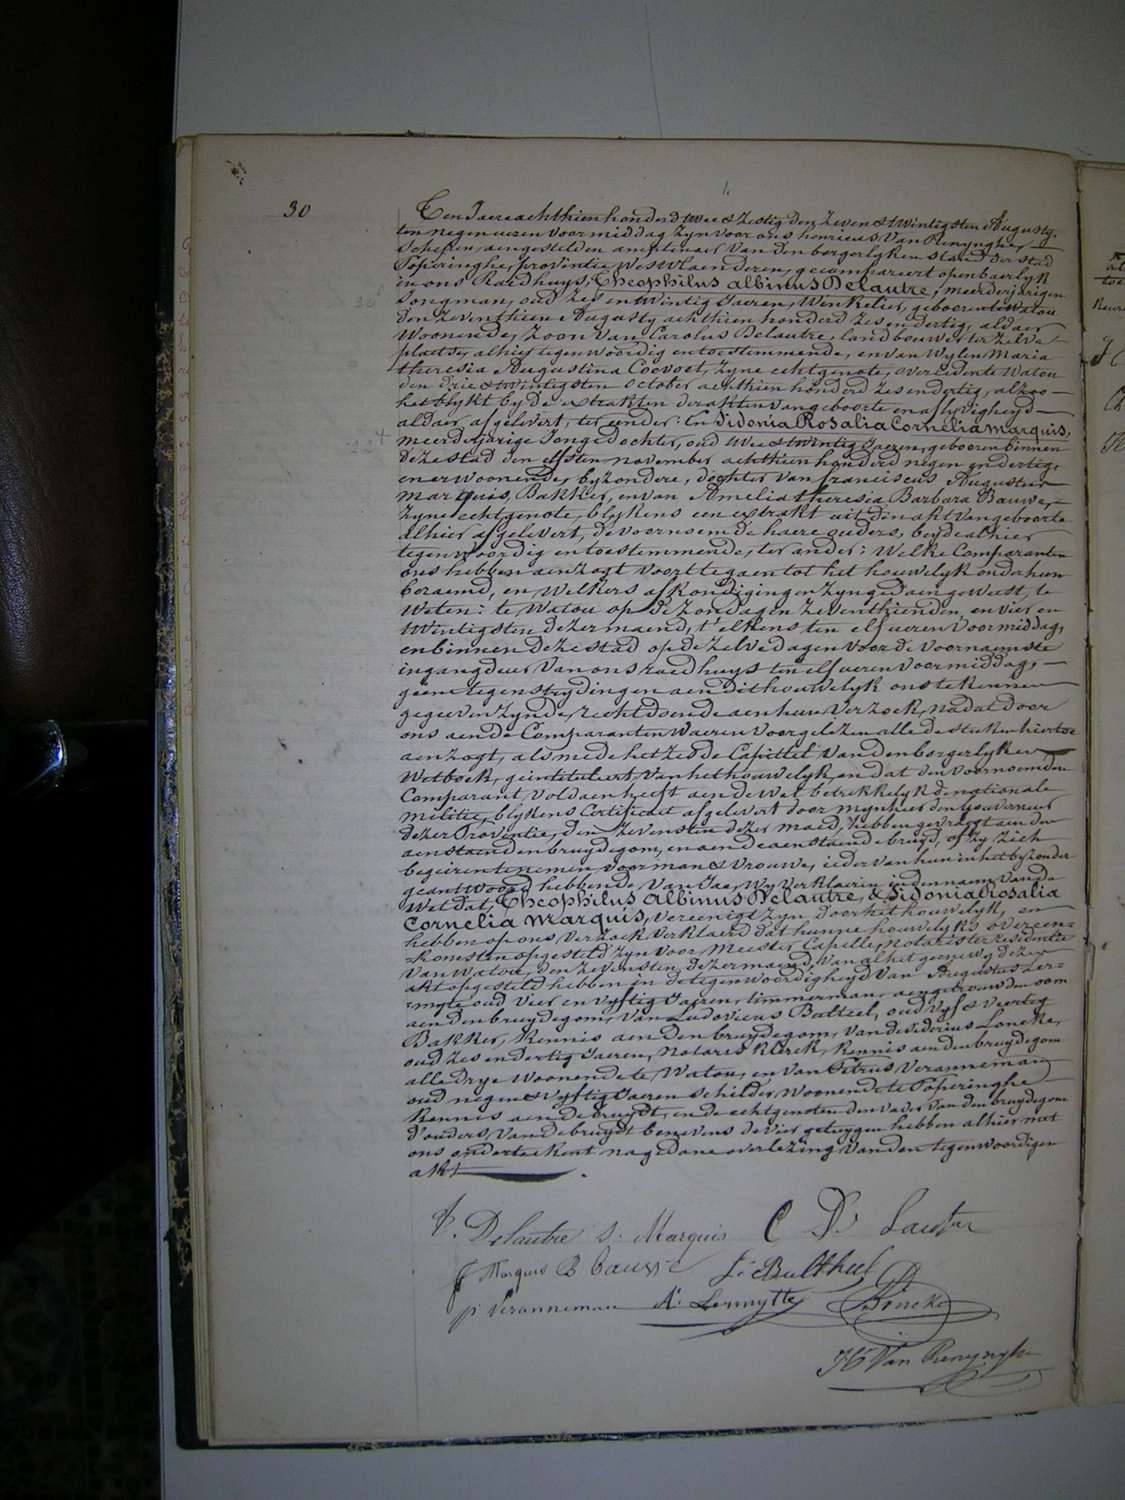 30
Ten Jaere achthien honderd twee & Zestig den Zeven & twintigsten Augusty,
ten negen uren voormiddag zyn voor ons henricus Van Renynghe,
Schepen, aengestelden amptenaer van den borgerlyken stand der stad
Poperinghe, provintie Westvlaenderen, gecompareert openbaerlyk
in ons Raedhuys, Theophilus Albinus Delautre, meerderjarigen
Jongman, oud Zes en twintig Jaeren, Winkelier, gebooren te Watou
den Zeventhien Augusty achthien honderd Zes en dertig, aldaer
Woonende, Zoon van Carolus Delautre, landbouwer ter zelve
plaetse, alhier tegenwoordig en toestemmende, en van Wylen Maria
theresia Augustina Coevoet, zyne echtgenote, overleden te Watou
den drie & twintigsten October achthien honderd Zes en dertig, alzoo
het blykt by de extrakten der akten van geboorte en aflyvigheyd
aldaer afgelevert, ter eender: En Sidonia Rosalia Cornelia Marquis,
meerderjarige Jonge dochter, oud twee & twintig Jaeren, gebooren binnen
deze stad den elfsten november achthien honderd negen en dertig,
en er woonende, byzondere, dochter van franciscus Augustus
Marquis, Bakker, en van Amelia theresia Barbara Bauwe,
zyne echtgenote, blykens een extrakt uit din akt van geboorte
alhier afgelevert, de voornoemde haere ouders, beyde alhier
tegenwoordig en toestemmende, ter ander: Welke Comparanten
ons hebben aenzogt voort te gaen tot het houwelyk onder hun
beraemd, en Welkers afkondigingen zyn gedaen geweest, te
Weten: te Watou op de Zondagen Zeventhienden, en vier en
twintigsten dezer maend, t'elkens ten elf ueren voormiddag,
en binnen deze stad op de zelve dagen voor de voornaemste
ingangdeur van ons raedhuys ten elf ueren voormiddag,
geene tegenstrydingen aen dit houwelyk ons te kennen
gegeeven zynde, rechtdoende aen hun verzoek, nadat door
ons aen de Comparanten Waeren voorgelezen alle de stukken hiertoe
aenzogt, als mede het zesde Capittel van den borgerlyken
Wetboek, geintituleert van het houwelyk, en dat den voornoemden
Comparant, voldaen heeft aen de Wet betrekkelyk de nationale
militie, blykens Certificaet afgelevert door mynheer den Gouverneur
dezer Provintie, den Zevensten dezer maend, hebben gevraegt aen den
aenstaenden bruydegom, en aen de aenstaende bruyd, of zy zich
begeiren te nemen voor man & vrouwe, ieder van hun in het byzonder
geantwoord hebbende van Jae, Wy verklaeren in den naem van de
Wet dat, Theophilus Albinus Delautre, & Sidonia Rosalia
Cornelia Marquis, vereenigt zyn door het houwelyk, en
hebben op ons verzoek verklaerd dat hunne houwelyks overeen=
=komsten opgesteld zyn voor Meester Capelle, notaris ter residentie
van Watou, den Zevensten dezer maend, van al het geene wy dezen
akt opgesteld hebben in de tegenwoordigheyd van Augustus Ler=
=myte oud vier en vyftig Jaeren, timmerman, aengetrouwden oom
aen den bruydegom, van Ludovicus Bulteel, oud vyf & veertig
Bakker, kennis aen den bruydegom, van desiderius Loncke,
oud zes en dertig Jaeren, Notaris klerk, kennis aen den bruydegom
alle drye Woonende te Watou, en van Petrus Veranneman
oud negen & vyftig Jaeren Schilder, Woonende te Poperinghe
kennis aen de bruydt, en de echtgenoten den vader van den bruydegom
d'ouders van de bruydt benevens de vier getuygen hebben alhier met
ons onderteekent na gedane overlezing van den tegenwoordigen
akt.
Delautre S. Marquis C D. Lautre
Marquis B Bauwe L. Bulteel
p Veranneman A. Lermytte D Loncke
H Van Renynghe